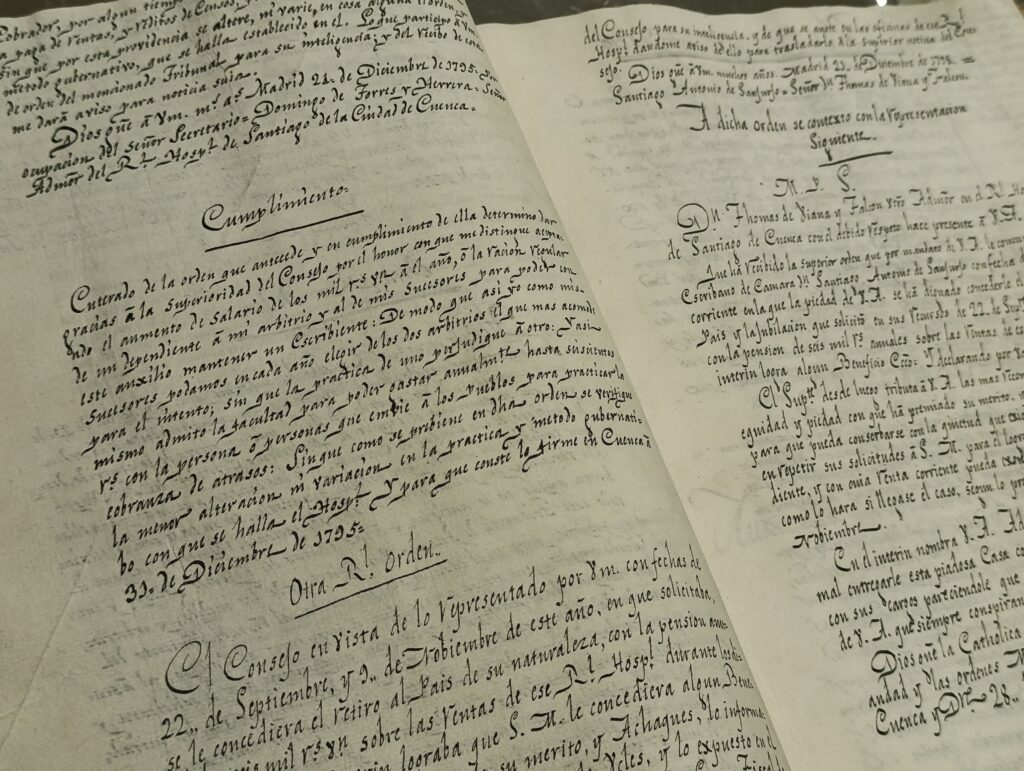 Cobrador, por algun tiempo
la paga de Rentas, y réditos de Censos,
sin que por esta providencia se altere, ni varie, en cosa alguna el orden y
metodo gubernativo, que se halla establecido en el. Lo que participo á Vm.
de orden del mencionado Tribunal para su inteligencia; y del recibo de esta
me dará aviso para noticia suia.
Dios gũe á Vm. m.s a.s Madrid 21. de Diciembre de 1795. Por
ocupacion del señor Secretario = Domingo de Torres y Herrera = Señor
Admõr del R.l Hosp.l de Santiago de la Ciudad de Cuenca.
Cumplimiento =
Enterado de la orden que antecede y en cumplimiento de ella determino dar
gracias á la Superioridad del Consejo por el honor con que me distingue aceptan-
do el aumento de Salario de los mil r.s vn á el año, ó la racion regular
de un dependiente á mi arbitrio y al de mis Sucesores para poder con
este auxilio mantener un Escribiente: De modo que asi yo como mis
Sucesores podamos en cada año elegir de los dos arbitrios el que mas acomode
para el intento; sin que la practica de uno perjudique á otro: Y asi
mismo admito la facultad para poder gastar anualm.te hasta suscientos
r.s con la persona ó personas que embie á los Pueblos para practicar la
cobranza de atrasos: Sin que como se prebiene en dha orden se verifique
la menor alteracion ni variacion en la practica y metodo gubernati-
bo con que se halla el Hosp.l Y para que conste lo firme en Cuenca á
31. de Diciembre de 1795 =
Otra R.l Orden..
El Consejo en vista de lo representado por Vm. con fechas de
22.. de Septiembre, y 9.. de Nobiembre de este año, en que solicitaba,
se le concediera el retiro al Pais de su naturaleza, con la pension anu-
mil r.s vn sobre las rentas de ese R.l Hosp.l durante los di-
lograba que S. M. le concediera algun Bene-
su merito, y Achaques, lo informa-
y lo expuesto en el
Fiscal de
del Consejo para su inteligencia, y de que se anote en las oficinas de ese R.l
Hosp.l dandome aviso de ello para trasladarlo a la superior noticia del Con-
sejo. Dios gũe á Vm. muchos años. Madrid 23.. de Diciembre de 1798. =
Santiago Antonio de Sanjurjo = Señor D.n Thomas de Viana y Falcon.
A dicha orden se contexto con la representacion
Siguiente..
M. P. S.
D.n Thomas de Viana y Falcon vr̃o Admõr en el R.l Hosp
de Santiago de Cuenca con el debido respeto hace presente á V.A.
Que ha recibido la superior orden que por mandato de V. A. le comun
Escribano de Camara D.n Santiago Antonio de Sanjurjo con fecha d
corriente en la que la piedad de V.A. se há dignado concederle el
Pais y la Jubilacion que solicitó en sus recursos de 22. de Sept
con la pension de seis mil r.s anuales sobre las Rentas de es
interin logra algun Beneficio Ecc.co Y declarando por v
El Sup.te desde luego tributa á V.A. las mas recon
equidad y piedad con que há premiado su merito,
para que pueda conserbarse con la quietud que exi
en repetir sus solicitudes á S. M. para el logro
diente, y con cuia renta corriente pueda exon
como lo hará si llegase el caso, segun lo pro
Nobiembre.
En el interin nombra V. A. Ad
mal entregarle esta piadosa Casa co
con sus cargos pareciendole que
de V. A. que siempre conspiran
Dios gũe la Catholica
andad y las ordenes M
Cuenca y D.re 28..